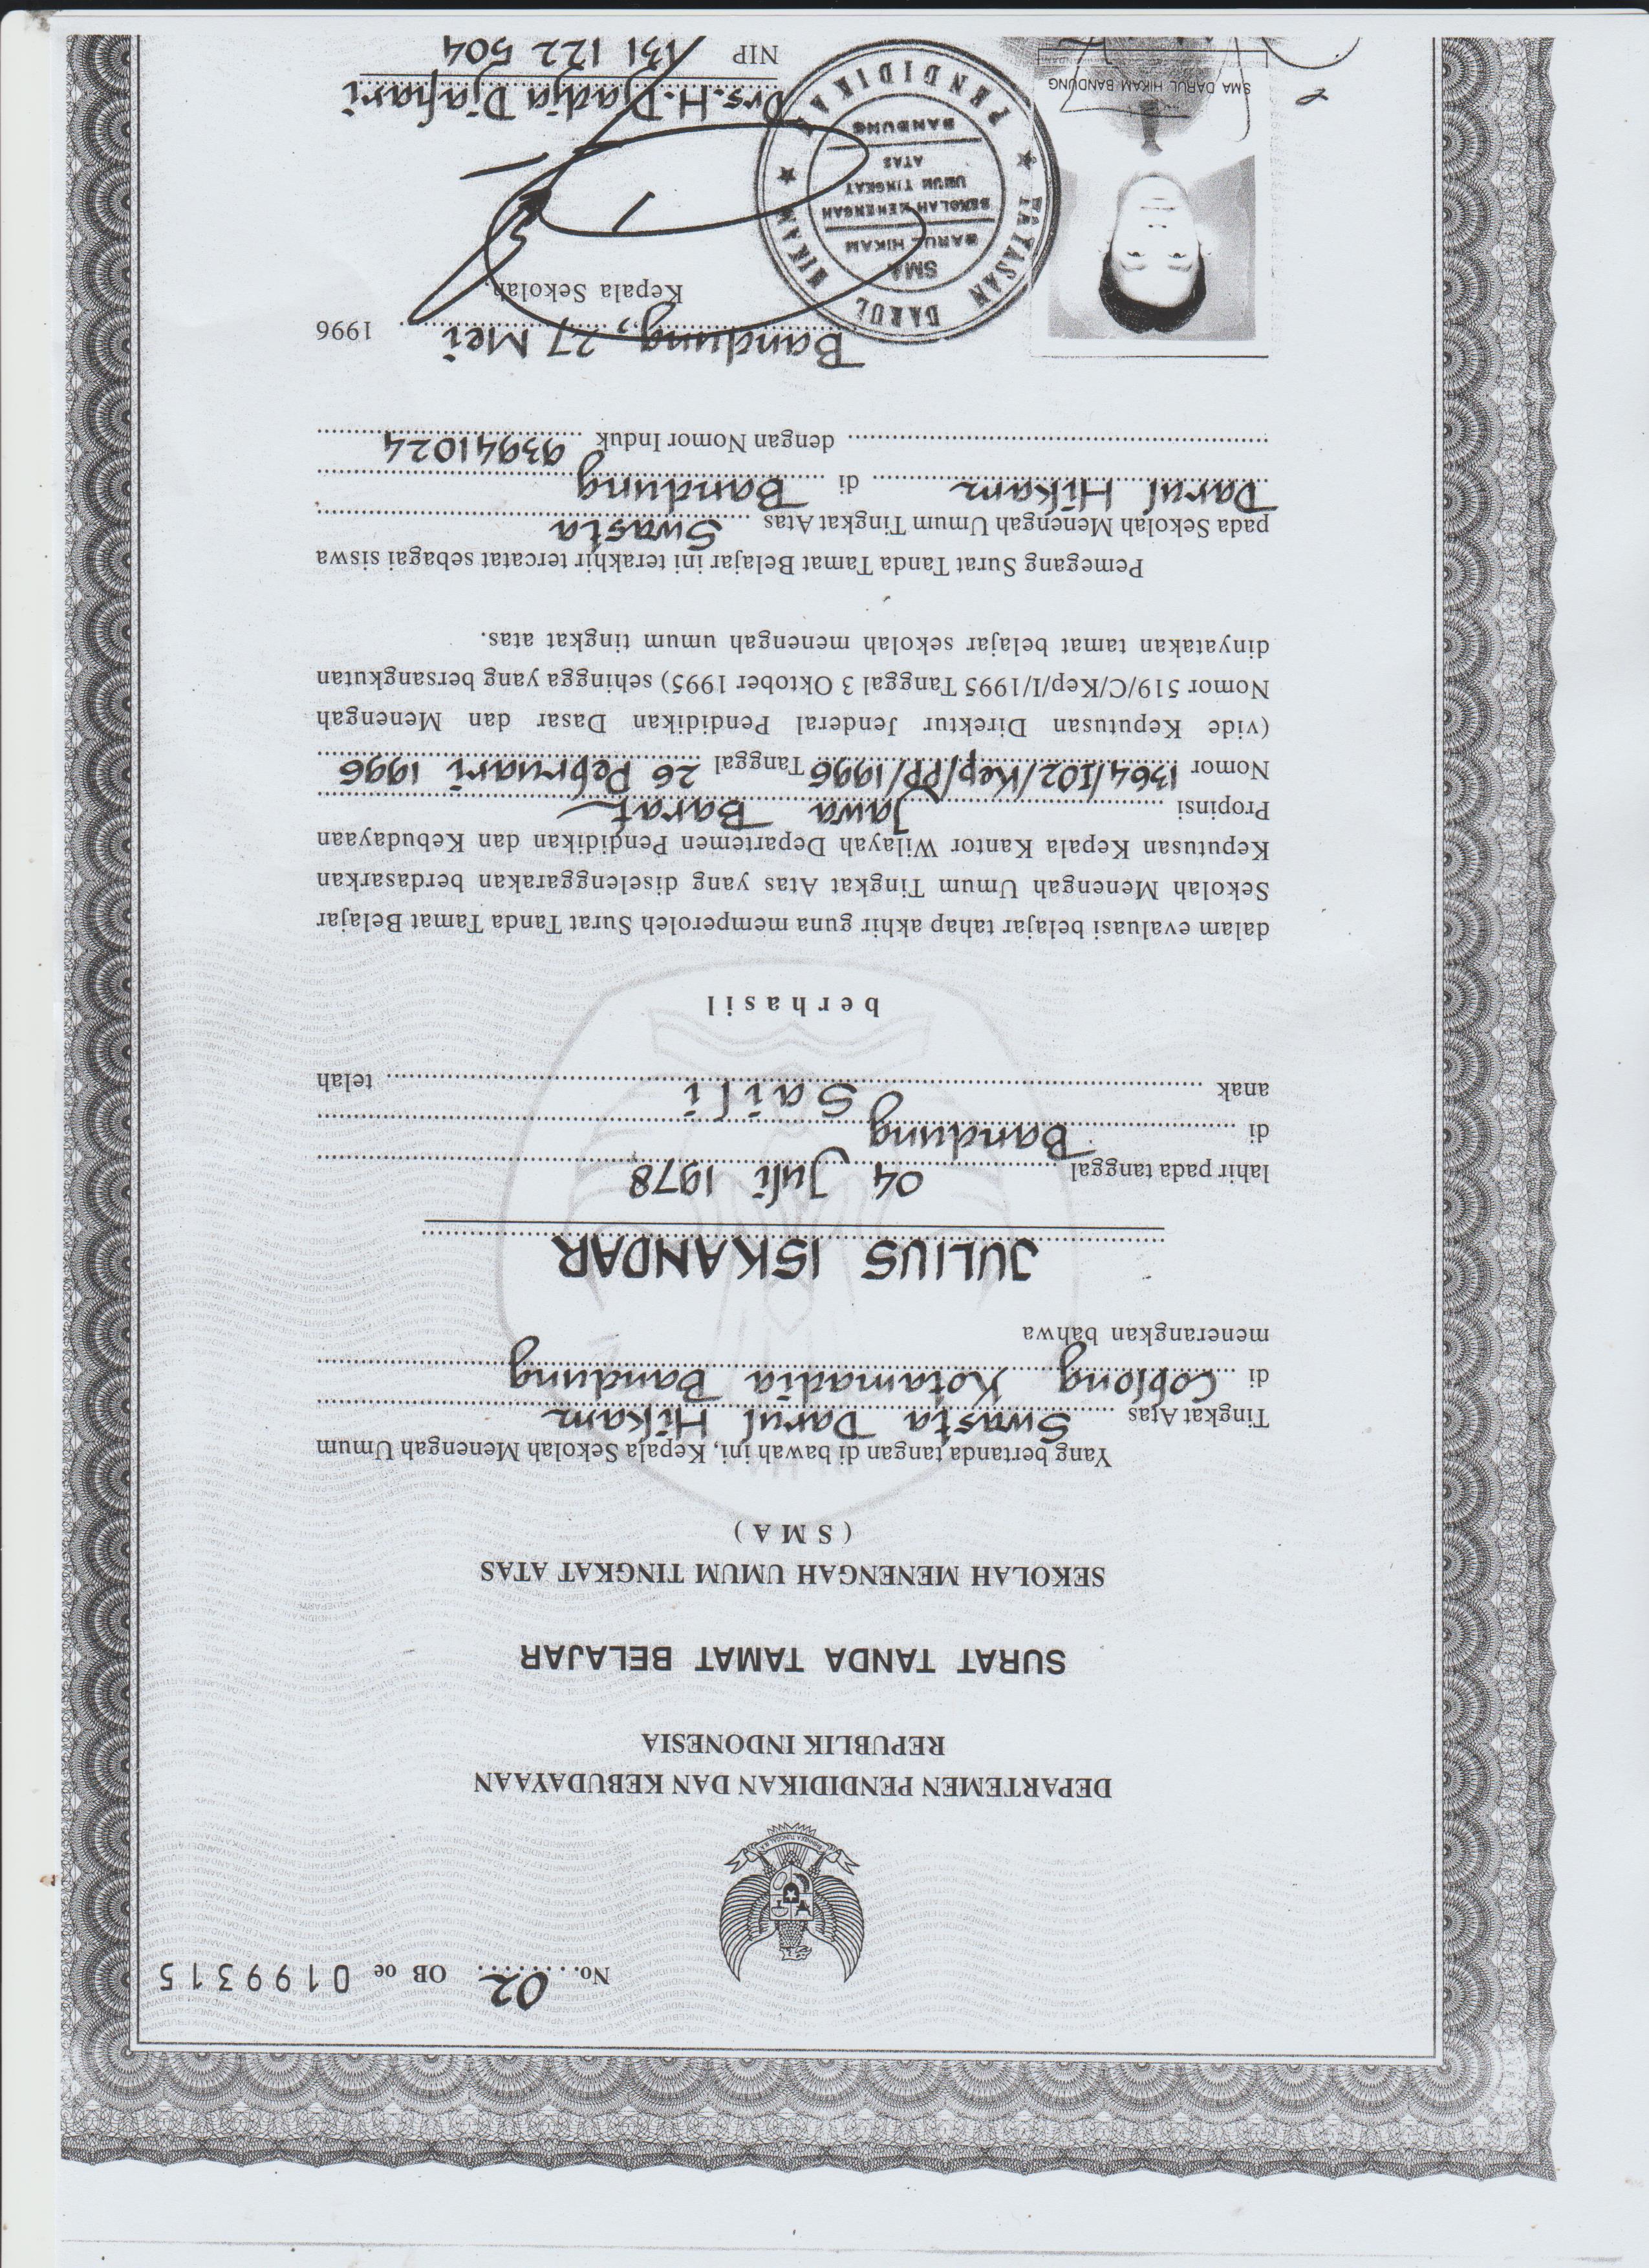 No. 02 OB oe 0199315
BHINNEKA TUNGGAL IKA
DEPARTEMEN PENDIDIKAN DAN KEBUDAYAAN
REPUBLIK INDONESIA
SURAT TANDA TAMAT BELAJAR
SEKOLAH MENENGAH UMUM TINGKAT ATAS
( S M A )
Yang bertanda tangan di bawah ini, Kepala Sekolah Menengah Umum
Tingkat Atas Swasta Darul Hikam
di Coblong Kotamadia Bandung
menerangkan bahwa
JULIUS ISKANDAR
lahir pada tanggal 04 Juli 1978
di Bandung
anak Saili telah
berhasil
dalam evaluasi belajar tahap akhir guna memperoleh Surat Tanda Tamat Belajar
Sekolah Menengah Umum Tingkat Atas yang diselenggarakan berdasarkan
Keputusan Kepala Kantor Wilayah Departemen Pendidikan dan Kebudayaan
Propinsi Jawa Barat
Nomor 1364/I02/Kep/PP/1996 Tanggal 26 Pebruari 1996
(vide Keputusan Direktur Jenderal Pendidikan Dasar dan Menengah
Nomor 519/C/Kep/I/1995 Tanggal 3 Oktober 1995) sehingga yang bersangkutan
dinyatakan tamat belajar sekolah menengah umum tingkat atas.
Pemegang Surat Tanda Tamat Belajar ini terakhir tercatat sebagai siswa
pada Sekolah Menengah Umum Tingkat Atas Swasta
Darul Hikam di Bandung
dengan Nomor Induk 93941024
Bandung, 27 Mei 1996
Kepala Sekolah,
YAYASAN DARUL HIKAM
PENDIDIKAN
SMA
DARUL HIKAM
SEKOLAH MENENGAH
UMUM TINGKAT
ATAS
BANDUNG
SMA DARUL HIKAM BANDUNG
Drs. H. Djadja Djafiari
NIP 131 122 504